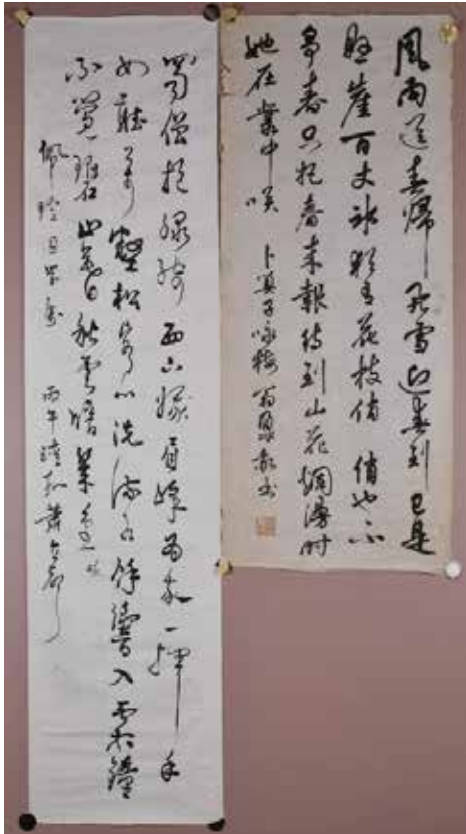 風雨送春歸飛雪迎春到已是
懸崖百丈冰猶有花枝俏 俏也不
争春只把春來報待到山花爛漫時
她在叢中咲 卜算子咏梅
蜀僧抱綠綺西下峨眉峰為我一揮手
如聽萬壑松客心洗流水餘響入霜鐘
不覺碧山暮秋雲暗幾重
丙午